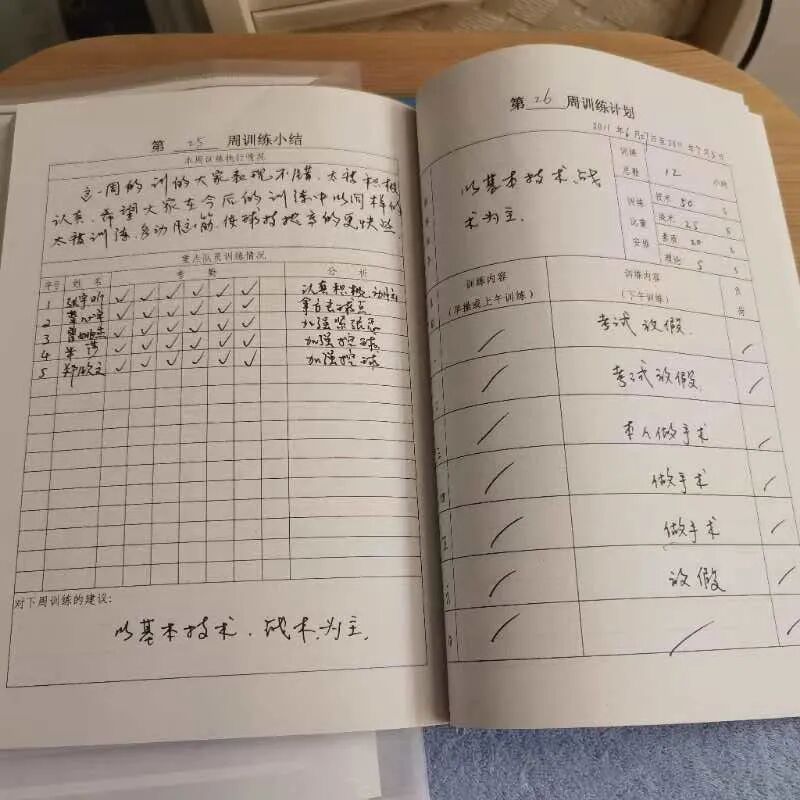 第 25 周训练小结
本周训练执行情况
这一周的训的大家表现不错、太被积极
认真、希望大家在今后的训练中以同样的
太被训练、多动脑筋、使球技提高的更快些.
重点队员训练情况
序号 姓名 考勤 分析
1 ✓ ✓ ✓ ✓ ✓ ✓ 认真积极
2 ✓ ✓ ✓ ✓ ✓ ✓
3 ✓ ✓ ✓ ✓ ✓ ✓ 加强
4 ✓ ✓ ✓ ✓ ✓ ✓ 加强控球
5 郑欣文 ✓ ✓ ✓ ✓ ✓ ✓ 加强控球
对下周训练的建议:
以基本技术、战术为主.
第 26 周训练计划
2011年6月27日至2011年7月3日
以基本技术、战
术为主.
训练
总数 12 小时
训练 技术 50 %
比重 战术 25 %
安排 素质 20 %
理论 5 %
训练内容
(早操或上午训练)
训练内容
(下午训练)
考试放假.
考试放假.
本人做手术
三
做手术
四
做手术
五
放假
六
日